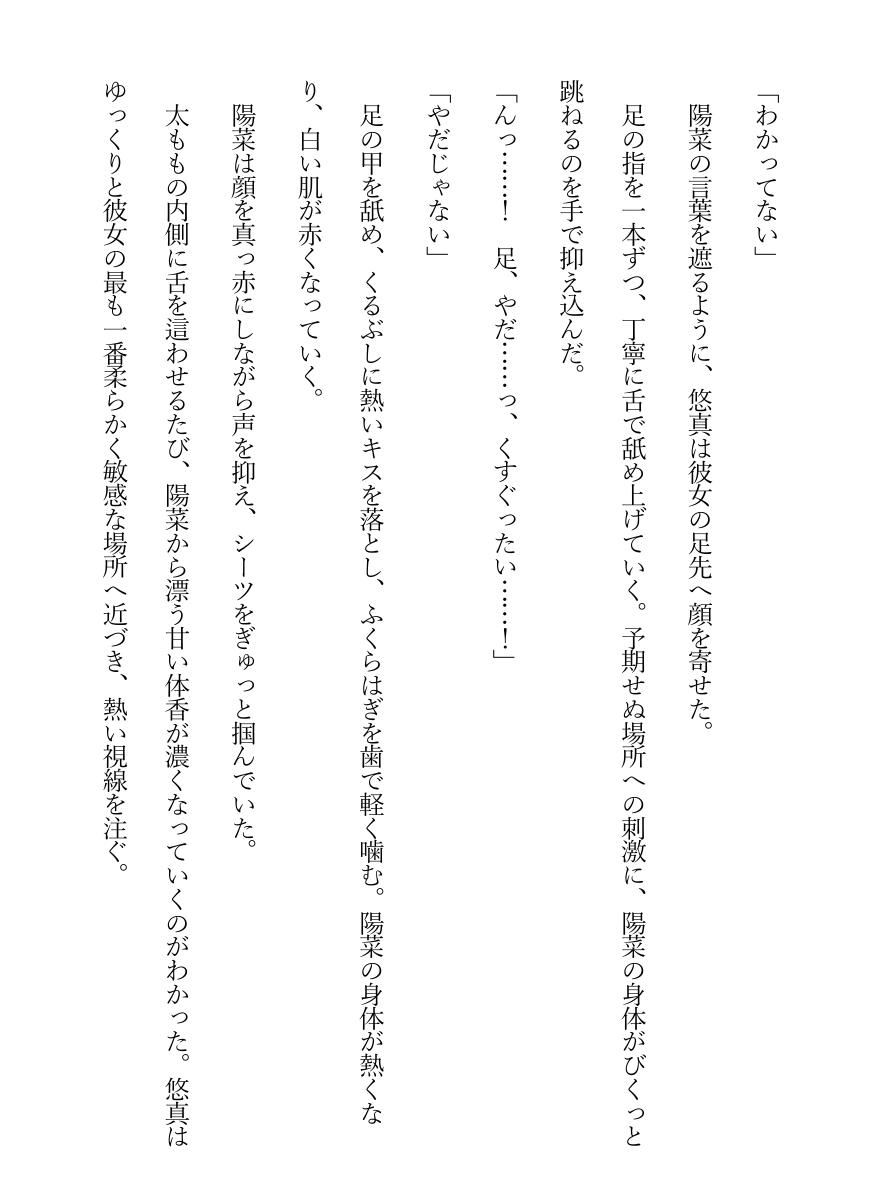 「わかってない」
　陽菜の言葉を遮るように、悠真は彼女の足先へ顔を寄せた。
　足の指を一本ずつ、丁寧に舌で舐め上げていく。予期せぬ場所への刺激に、陽菜の身体がびくっと
跳ねるのを手で抑え込んだ。
「んっ……！　足、やだ……っ、くすぐったい……！」
「やだじゃない」
　足の甲を舐め、くるぶしに熱いキスを落とし、ふくらはぎを歯で軽く噛む。陽菜の身体が熱くな
り、白い肌が赤くなっていく。
　陽菜は顔を真っ赤にしながら声を抑え、シーツをぎゅっと掴んでいた。
　太ももの内側に舌を這わせるたび、陽菜から漂う甘い体香が濃くなっていくのがわかった。悠真は
ゆっくりと彼女の最も一番柔らかく敏感な場所へ近づき、熱い視線を注ぐ。